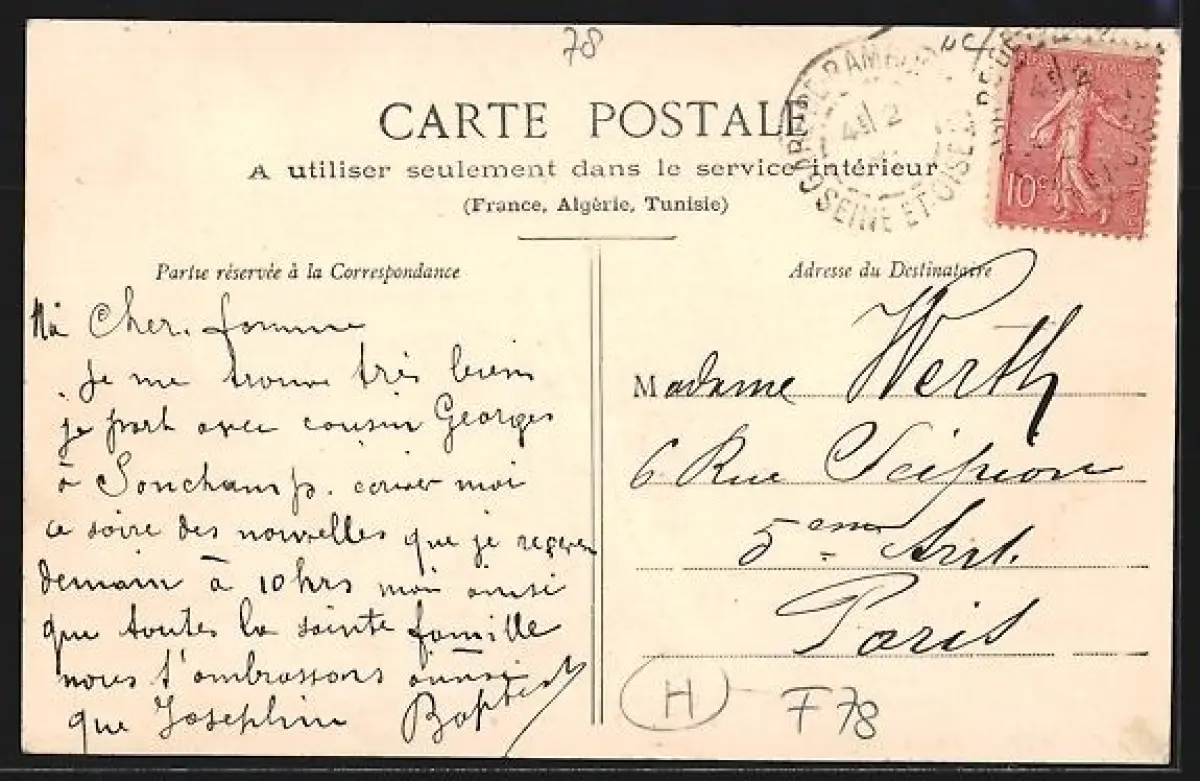 78
CARTE POSTALE
A utiliser seulement dans le service intérieur
(France, Algérie, Tunisie)
SEINE-ET-OISE
10c
Partie réservée à la Correspondance
Adresse du Destinataire
Ma Cher. famme
je me trouve très bien
je part avec cousin Georges
à Sonchamp. écriver moi
ce soire des nouvelles que je reçeve
demain à 10 hrs moi ausi
que toutes la sainte famille
nous t'ambrassons aûnsi
que Josephine Baptist
Madame Werth
6 Rue Scipion
5eme Arrt.
Paris
H
F 78